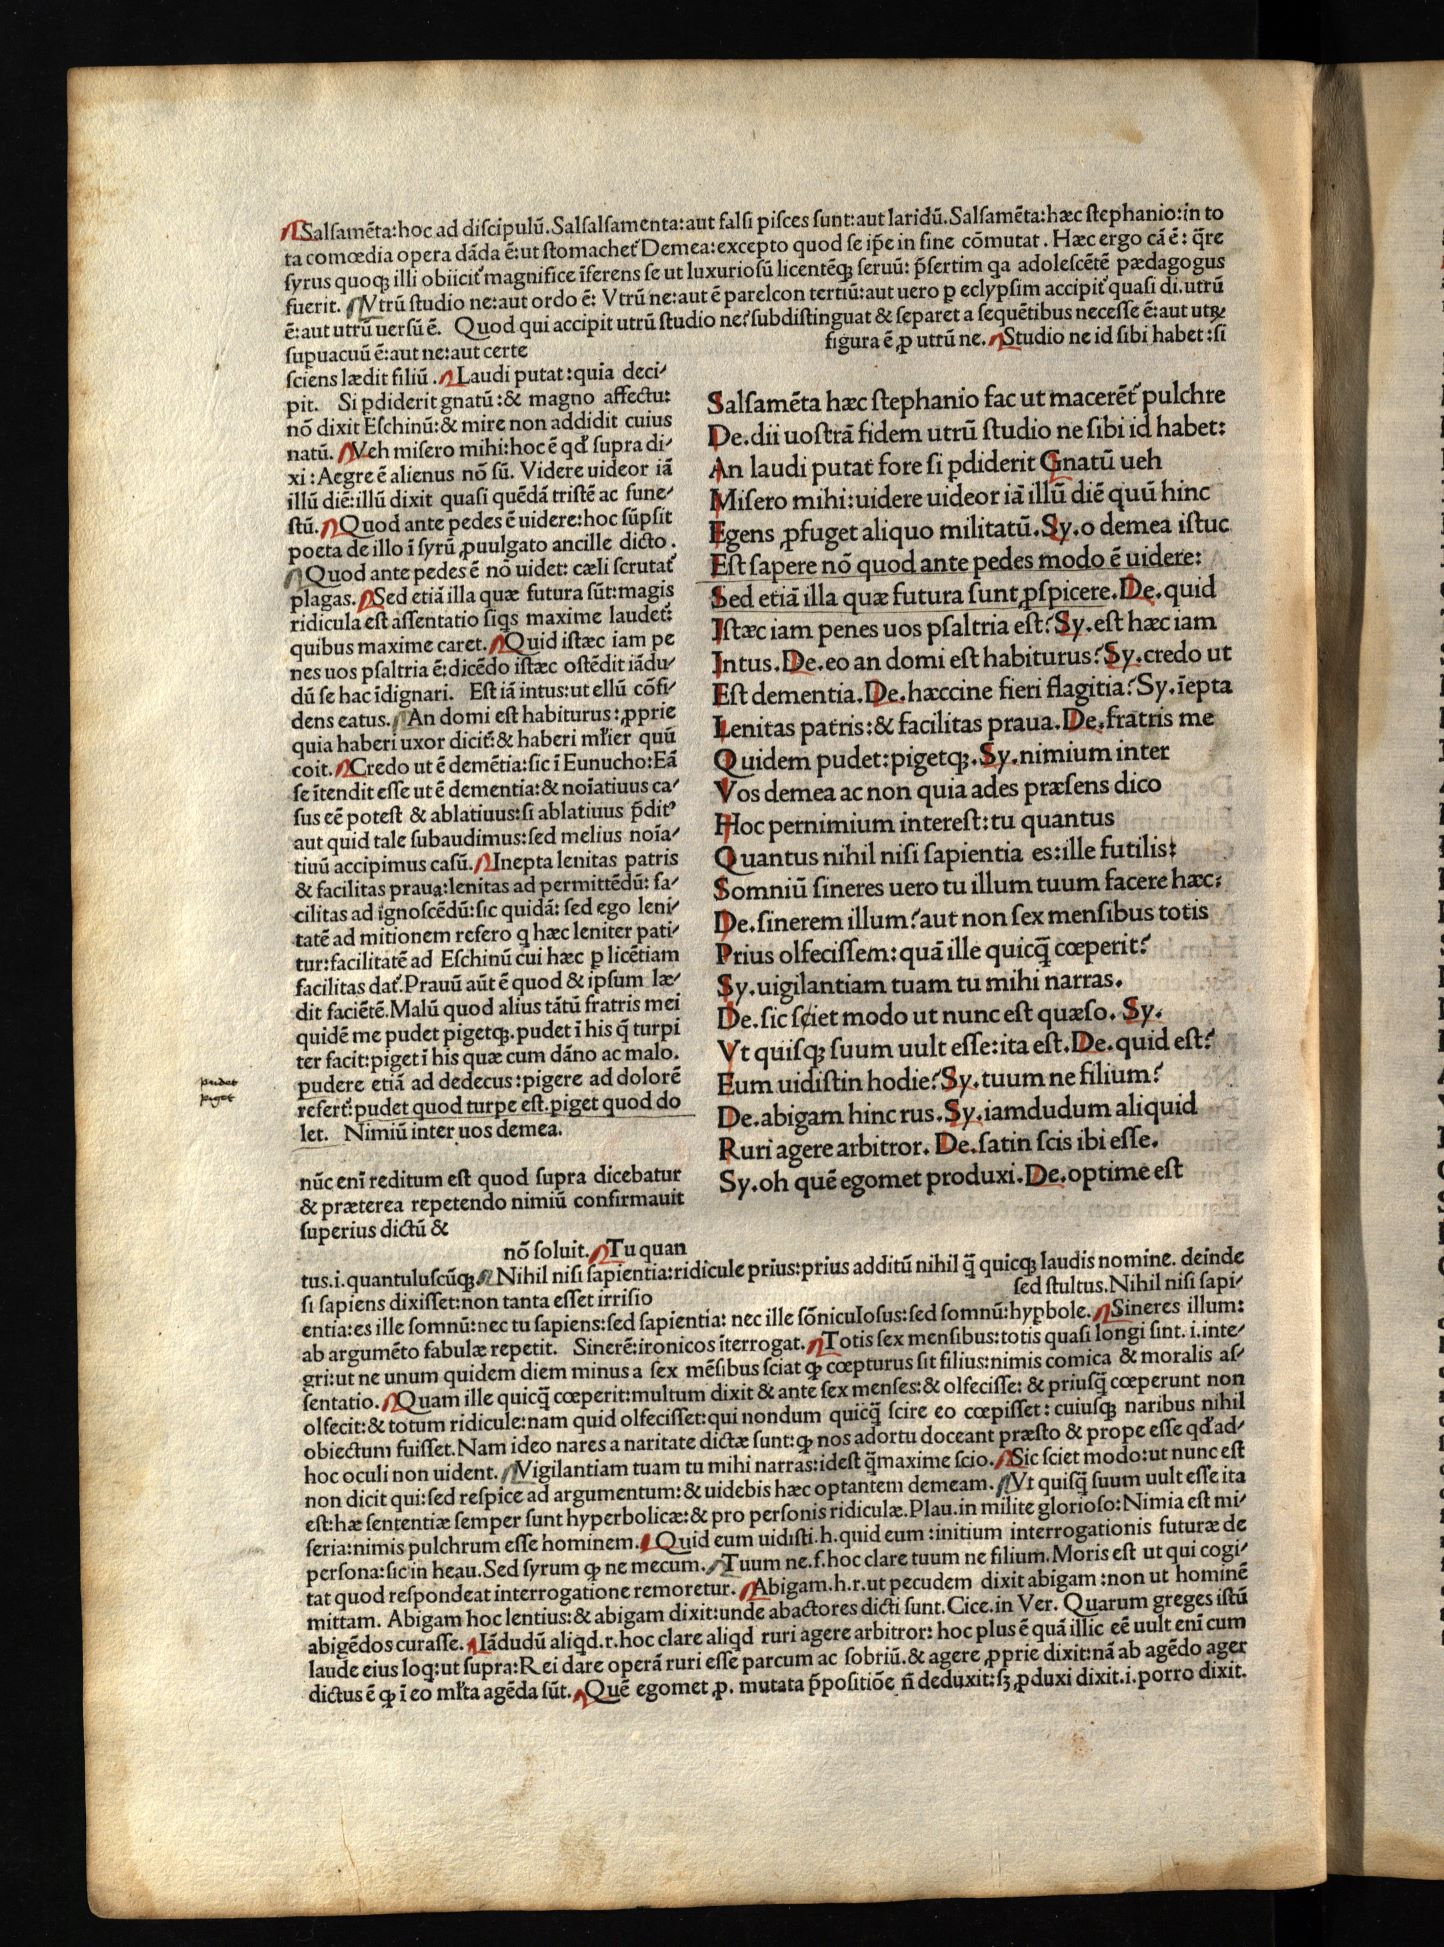 Salſamēta:hoc ad diſcipulū.Salſalſamenta:aut falſi piſces ſunt:aut laridū.Salſamēta:hæc ſtephanio:in to
ta comœdia opera dāda ē:ut ſtomachet᷑ Demea:excepto quod ſe ip̄e in fine cōmutat. Hæc ergo cā ē: q̄re
ſyrus quoq; illi obiicit᷑ magnifice īferens ſe ut luxurioſū licentēq; ſeruū: p̄ſertim qa adoleſcētē pædagogus
fuerit. Vtrū ſtudio ne:aut ordo ē: Vtrū ne:aut ē parelcon tertiū:aut uero ꝑ eclypſim accipit᷑ quaſi di.utrū
ē:aut utrū uerſū ē. Quod qui accipit utrū ſtudio ne? ſubdiſtinguat & ſeparet a ſequētibus neceſſe ē:aut utrꝝ
ſupuacuū ē:aut ne:aut certe
figura ē ꝓ utrū ne. Studio ne id ſibi habet:ſi
ſciens lædit filiū. Laudi putat:quia deci-
pit. Si ꝑdiderit gnatū:& magno affectu:
nō dixit Eſchinū:& mire non addidit cuius
natū. Veh miſero mihi:hoc ē qd̄ ſupra di-
xi:Aegre ē alienus nō ſū. Videre uideor iā
illū diē:illū dixit quaſi quēdā triſtē ac fune-
ſtū. Quod ante pedes ē uidere:hoc sūpſit
poeta de illo ī ſyrū ꝓuulgato ancille dicto.
Quod ante pedes ē nō uidet: cæli ſcrutat᷑
plagas. Sed etiā illa quæ futura sūt:magis
ridicula eſt aſſentatio ſiqs maxime laudet᷑:
quibus maxime caret. Quid iſtæc iam pe
nes uos pſaltria ē:dicēdo iſtæc oſtēdit iādu-
dū ſe hac īdignari. Eſt iā intus:ut ellū cōfi-
dens eatus. An domi eſt habiturus:ꝓprie
quia haberi uxor dicit᷑:& haberi mlier quū
coit. Credo ut ē demētia:ſic ī Eunucho:Eā
ſe ītendit eſſe ut ē dementia:& noīatiuus ca-
ſus eē poteſt & ablatiuus:ſi ablatiuus p̄dit᷒
aut quid tale ſubaudimus:ſed melius noīa-
tiuū accipimus caſū. Inepta lenitas patris
& facilitas praua:lenitas ad permittēdū: fa-
cilitas ad ignoſcēdū:ſic quidā: ſed ego leni-
tatē ad mitionem refero q hæc leniter pati-
tur:facilitatē ad Eſchinū cui hæc ꝑ licētiam
facilitas dat᷑.Prauū aūt ē quod & ipſum læ-
dit faciētē.Malū quod alius tātū fratris mei
quidē me pudet pigetq;.pudet ī his q̄ turpi
ter facit:piget ī his quæ cum dāno ac malo.
pudere etiā ad dedecus:pigere ad dolorē
refert᷑:pudet quod turpe eſt.piget quod do
let. Nimiū inter uos demea.
pudet
piget
nūc enī reditum eſt quod ſupra dicebatur
& præterea repetendo nimiū confirmauit
ſuperius dictū &
Salſamēta hæc ſtephanio fac ut macerēt᷑ pulchre
De.dii uoſtrā fidem utrū ſtudio ne ſibi id habet:
An laudi putat fore ſi ꝑdiderit Gnatū ueh
Miſero mihi:uidere uideor iā illū diē quū hinc
Egens ꝓfuget aliquo militatū.Sy.o demea iſtuc
Eſt ſapere nō quod ante pedes modo ē uidere:
Sed etiā illa quæ futura ſunt ꝓſpicere.De.quid
Iſtæc iam penes uos pſaltria eſt?Sy.eſt hæc iam
Intus.De.eo an domi eſt habiturus?Sy.credo ut
Eſt dementia.De.hæccine fieri flagitia?Sy.īepta
Lenitas patris:& facilitas praua.De.fratris me
Quidem pudet:pigetq;.Sy.nimium inter
Vos demea ac non quia ades præſens dico
Hoc pernimium intereſt:tu quantus
Quantus nihil niſi ſapientia es:ille futilis:
Somniū ſineres uero tu illum tuum facere hæc:
De.ſinerem illum?aut non ſex menſibus totis
Prius olfeciſſem:quā ille quicq̄ cœperit?
Sy.uigilantiam tuam tu mihi narras.
De.ſic ſciet modo ut nunc eſt quæſo.Sy.
Vt quiſq; ſuum uult eſſe:ita eſt.De.quid eſt?
Eum uidiſtin hodie?Sy.tuum ne filium?
De.abigam hinc rus.Sy.iamdudum aliquid
Ruri agere arbitror.De.ſatin ſcis ibi eſſe.
Sy.oh quē egomet produxi.De.optime eſt
nō ſoluit. Tu quan
tus.i.quantuluſcūq;. Nihil niſi ſapientia:ridicule prius:prius additū nihil q̄ quicq; laudis nomine. deinde
ſi ſapiens dixiſſet:non tanta eſſet irriſio
ſed ſtultus.Nihil niſi ſapi-
entia:es ille ſomnū:nec tu ſapiens:ſed ſapientia: nec ille sōniculoſus:ſed ſomnū:hyꝑbole. Sineres illum:
ab argumēto fabulæ repetit. Sinerē:ironicos īterrogat. Totis ſex menſibus:totis quaſi longi ſint. i.inte-
gri:ut ne unum quidem diem minus a ſex mēſibus ſciat ꝙ cœpturus ſit filius:nimis comica & moralis aſ-
ſentatio. Quam ille quicq̄ cœperit:multum dixit & ante ſex menſes:& olfeciſſe: & priuſq̄ cœperunt non
olfecit:& totum ridicule:nam quid olfeciſſet:qui nondum quicq̄ ſcire eo cœpiſſet: cuiuſq; naribus nihil
obiectum fuiſſet.Nam ideo nares a naritate dictæ ſunt:ꝙ nos adortu doceant præſto & prope eſſe qd̄ ad-
hoc oculi non uident. Vigilantiam tuam tu mihi narras:ideſt q̄maxime ſcio. Sic ſciet modo:ut nunc eſt
non dicit qui:ſed reſpice ad argumentum:& uidebis hæc optantem demeam. Vt quiſq̄ ſuum uult eſſe ita
eſt:hæ ſententiæ ſemper ſunt hyperbolicæ:& pro perſonis ridiculæ.Plau.in milite glorioſo:Nimia eſt mi-
ſeria:nimis pulchrum eſſe hominem. Quid eum uidiſti.h.quid eum:initium interrogationis futuræ de
perſona:ſic in heau.Sed ſyrum ꝙ ne mecum. Tuum ne.f.hoc clare tuum ne filium.Moris eſt ut qui cogi-
tat quod reſpondeat interrogatione remoretur. Abigam.h.r.ut pecudem dixit abigam:non ut hominē
mittam. Abigam hoc lentius:& abigam dixit:unde abactores dicti ſunt.Cice.in Ver. Quarum greges iſtū
abigēdos curaſſe. Iādudū aliqd.r.hoc clare aliqd ruri agere arbitror: hoc plus ē quā illic eē uult enī cum
laude eius loq:ut ſupra:Rei dare operā ruri eſſe parcum ac ſobriū.& agere ꝓprie dixit:nā ab agēdo ager
dictus ē ꝙ ī eo mlta agēda sūt. Quē egomet ꝓ. mutata p̄poſitiōe n̄ deduxit:ſꝫ ꝓduxi dixit.i.porro dixit.